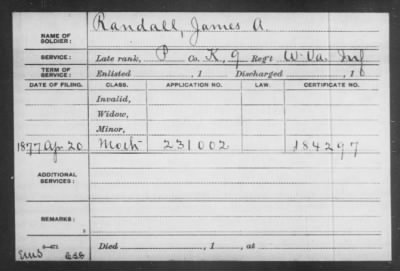 NAME OF SOLDIER: Randall, James A.
SERVICE: Late rank, P Co. K, 9 Reg't W. Va. Inf
TERM OF SERVICE: Enlisted , 1 Discharged , 1
DATE OF FILING. CLASS. APPLICATION NO. LAW. CERTIFICATE NO.
Invalid,
Widow,
Minor,
1877 Ap 20 Moth 231002 184297
ADDITIONAL SERVICES:
REMARKS:
Died , 1 , at